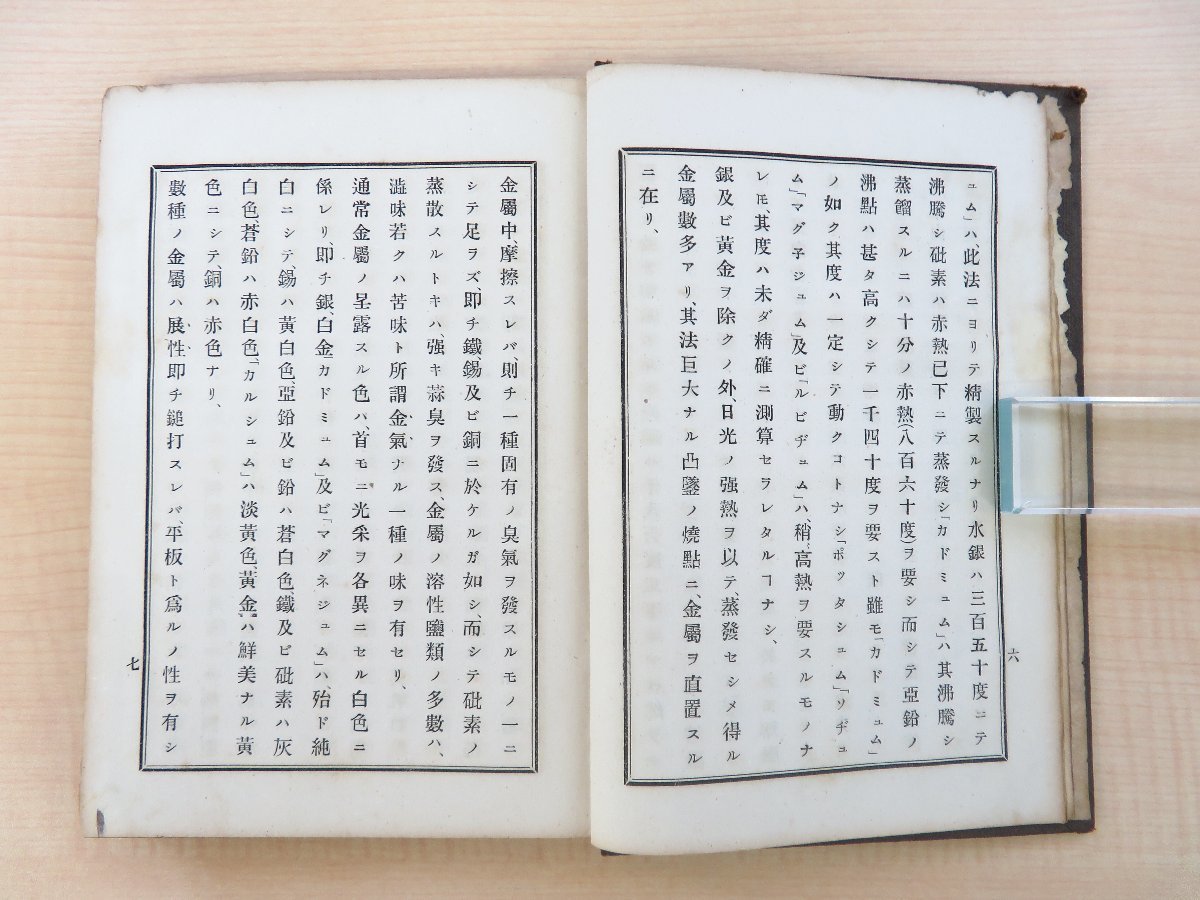 ユム」ハ、此法ニヨリテ精製スルナリ水銀ハ三百五十度ニテ
沸騰シ砒素ハ赤熱已下ニテ蒸發シ「カドミュム」ハ其沸騰シ
蒸餾スルニハ十分ノ赤熱(八百六十度)ヲ要シ而シテ亞鉛ノ
沸點ハ甚タ高クシテ一千四十度ヲ要スト雖モ「カドミュム」
ノ如ク其度ハ一定シテ動クコトナシ「ポッタシュム」「ソヂュ
ム」「マグ子ジュム」及ビ「ルビヂュム」ハ、稍高熱ヲ要スルモノナ
レ𪜈、其度ハ未ダ精確ニ測算セラレタルヿナシ、
銀及ビ黄金ヲ除クノ外、日光ノ强熱ヲ以テ、蒸發セシメ得ル
金屬數多アリ、其法巨大ナル凸鏡ノ燒點ニ、金屬ヲ直置スル
ニ在リ、
六
金屬中、摩擦スレバ、則チ一種固有ノ臭氣ヲ發スルモノ一ニ
シテ足ラズ、即チ鐵、錫及ビ銅ニ於ケルガ如シ、而シテ砒素ノ
蒸散スルトキハ、强キ蒜臭ヲ發ス、金屬ノ溶性鹽類ノ多數ハ、
澁味若クハ苦味ト所謂金氣ナル一種ノ味ヲ有セリ、
通常金屬ノ呈露スル色ハ、首モニ光采ヲ各異ニセル白色ニ
係レリ、即チ銀、白金「カドミュム」及ビ「マグネジュム」ハ、殆ド純
白ニシテ、錫ハ黄白色、亞鉛及ビ鉛ハ蒼白色、鐵及ビ砒素ハ灰
白色、蒼鉛ハ赤白色、「カルシュム」ハ淡黄色、黄金ハ鮮美ナル黄
色ニシテ、銅ハ赤色ナリ、
數種ノ金屬ハ展性即チ鎚打スレバ、平板ト爲ルノ性ヲ有シ
七